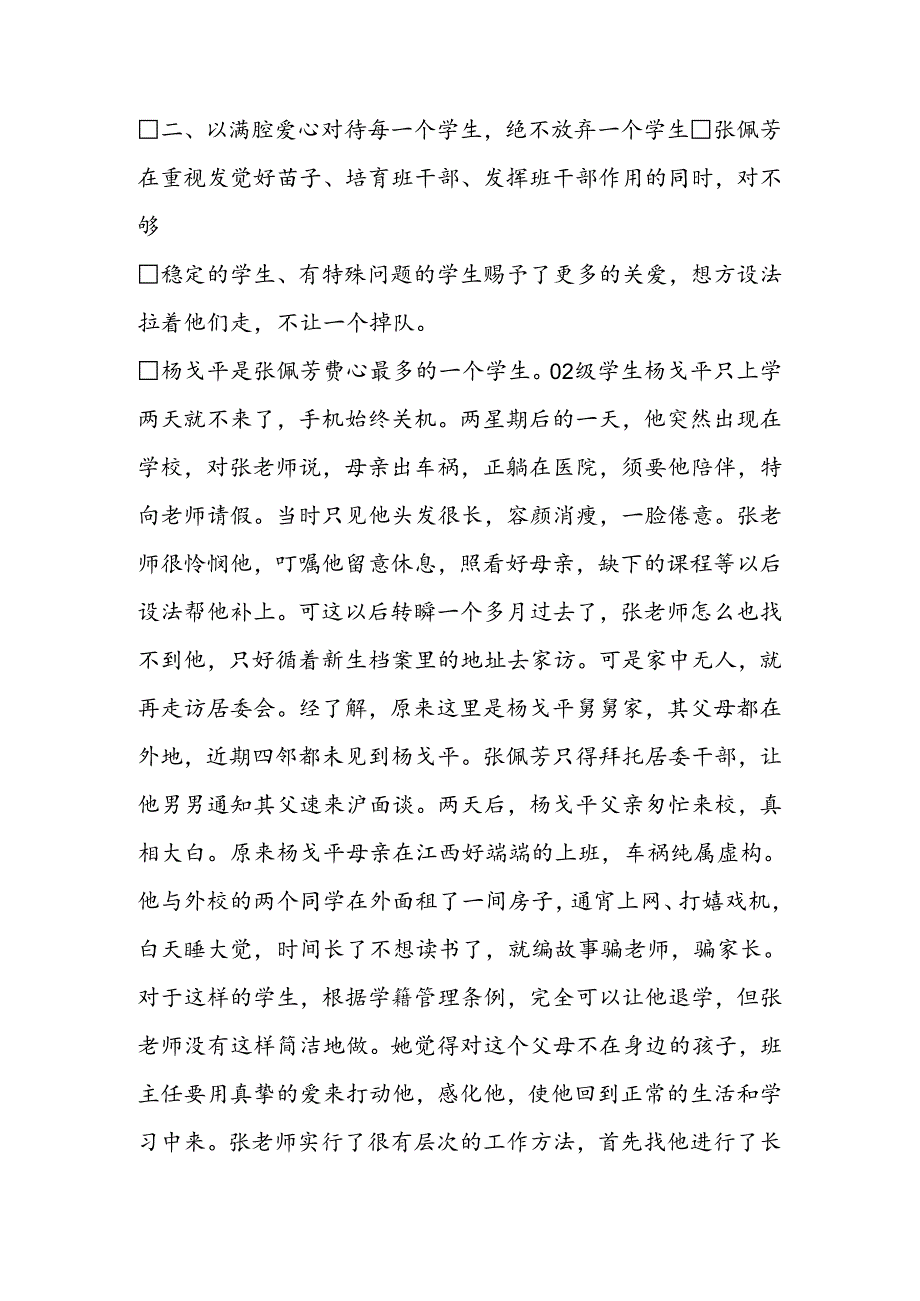 □二、以满腔爱心对待每一个学生，绝不放弃一个学生□张佩芳
在重视发觉好苗子、培育班干部、发挥班干部作用的同时，对不
够
□稳定的学生、有特殊问题的学生赐予了更多的关爱，想方设法
拉着他们走，不让一个掉队。
□杨戈平是张佩芳费心最多的一个学生。02级学生杨戈平只上学
两天就不来了，手机始终关机。两星期后的一天，他突然出现在
学校，对张老师说，母亲出车祸，正躺在医院，须要他陪伴，特
向老师请假。当时只见他头发很长，容颜消瘦，一脸倦意。张老
师很怜悯他，叮嘱他留意休息，照看好母亲，缺下的课程等以后
设法帮他补上。可这以后转瞬一个多月过去了，张老师怎么也找
不到他，只好循着新生档案里的地址去家访。可是家中无人，就
再走访居委会。经了解，原来这里是杨戈平舅舅家，其父母都在
外地，近期四邻都未见到杨戈平。张佩芳只得拜托居委干部，让
他男男通知其父速来沪面谈。两天后，杨戈平父亲匆忙来校，真
相大白。原来杨戈平母亲在江西好端端的上班，车祸纯属虚构。
他与外校的两个同学在外面租了一间房子，通宵上网、打嬉戏机，
白天睡大觉，时间长了不想读书了，就编故事骗老师，骗家长。
对于这样的学生，根据学籍管理条例，完全可以让他退学，但张
老师没有这样简洁地做。她觉得对这个父母不在身边的孩子，班
主任要用真挚的爱来打动他，感化他，使他回到正常的生活和学
习中来。张老师实行了很有层次的工作方法，首先找他进行了长